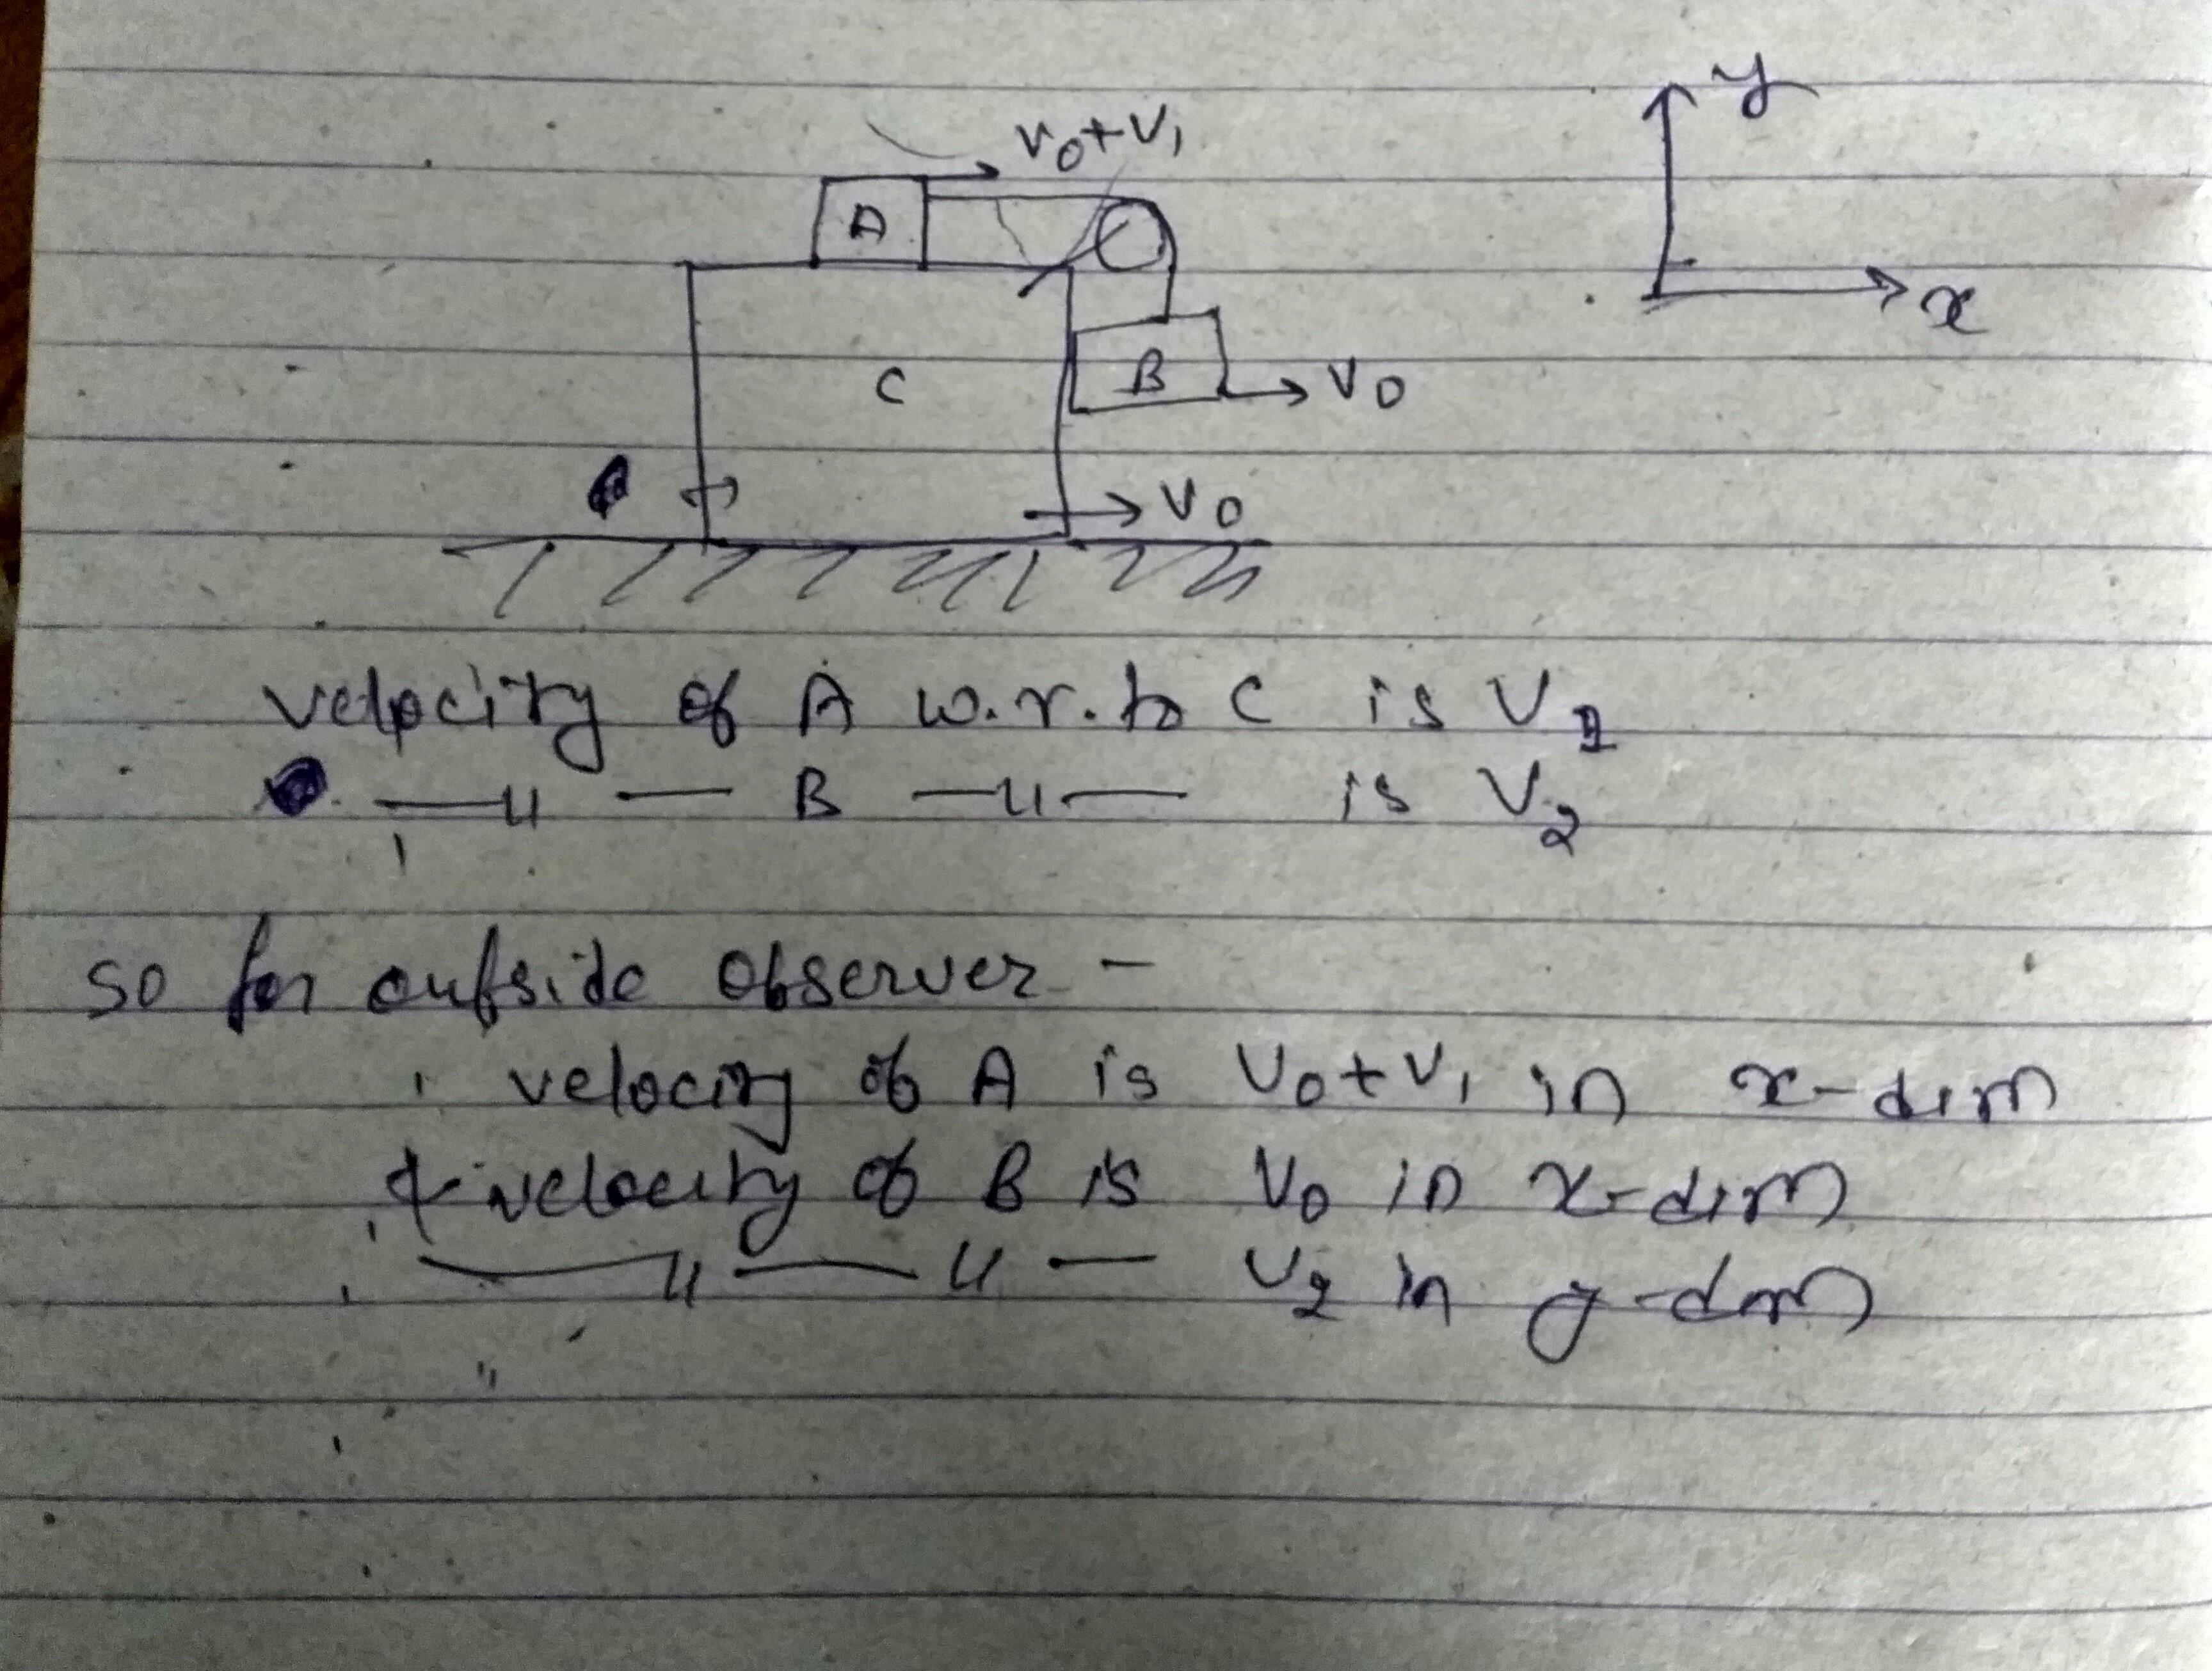 y
V₀+V₁
A
x
C
B
V₀
V₀
velocity of A w.r.to C is V₁
—〃— B —〃— is V₂
so for outside observer –
velocity of A is V₀+V₁ in x-dirn
& velocity of B is V₀ in x-dirn
—〃—〃— V₂ in y-dirn